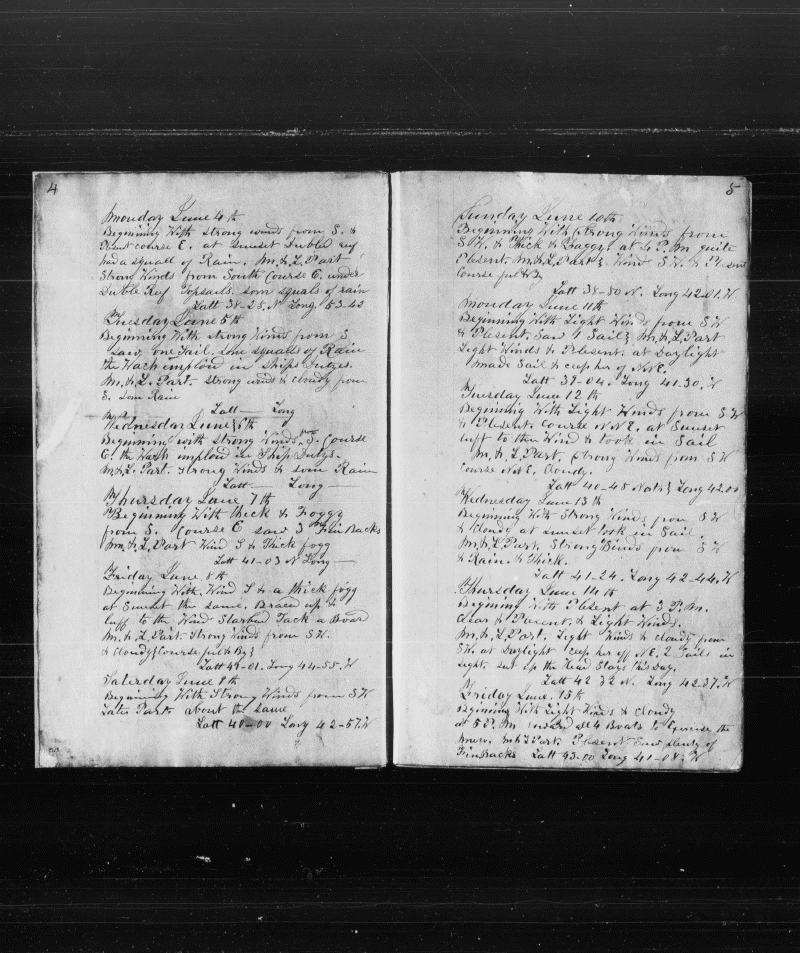 4
Monday June 4th
Beginning With strong winds from S. &
course E. at Sunset Dubld ref
had a squall of Rain. M.& L. Part
Strong Winds from South Course E. under
Duble Ref Topsails. som squals of rain
Latt 38-25. N Long. 53-42
Tuesday June 5th
Beginning With strong Winds from S
Saw one Sail. som squalls of Rain
the Wach imploid in ships Dutys.
M.& L. Part strong winds & cloudy from
S. Som Rain
Latt— Long
Wednesday June 6th
Beginning with strong Winds from S. Course
E. the Wach imploid in Ship Dutys.
M.& L. Part. Strong Winds & som Rain
Latt— Long—
Thursday June 7th
Beginning With thick & Foggy
from S. Course E saw 3 Fin Backs
M.& L. Part Wind S & Thick fogg
Latt 41-03 N Long—
Friday June 8th
Beginning With Wind S & a thick fogg
at Sunset the same. Braced up &
luff to the Wind Starbrd Tack a Board
M.& L. Part. Strong Winds from S.W.
& cloudy Course ful & By
Latt 41-01. Long 44-55. W
Saturday June 9th
Beginning With Strong Winds from S W
Later Part about the same
Latt 40-00 Long 42-57. W
5
Sunday June 10th
Beginning With strong Winds from
S W. & Thick & Foggy at 4 P. M quite
Plesent. M.& L. Part Wind S W. & Plesent
Course ful & B
Latt 38-50 N. Long 42-01. W
Monday June 11th
Beginning With Light Winds from S W
& Plesent. Saw 4 Sails M.& L. Part
Light Winds & Plesent. at Daylight
made Sail & cep her of N.N.E.
Latt 39-04. Long 41-30. W
Tuesday June 12th
Beginning With Light Winds from S W
& Plesent. Course N N E. at Sunset
luft to the Wind & took in Sail
M.& L. Part. Strong Winds from S W
Course N.N.E. Cloudy.
Latt 40-45 North Long 42.00
Wednesday June 13th
Beginning With Strong Winds from S W
& Cloudy at sunset took in Sail
M.& L. Part. Strong Winds from S W
& Rain. & Thick.
Latt 41-24. Long 42-44. W
Thursday June 14th
Begining With Plesent at 3 P. M.
Clear & Plesent. & Light Winds.
M. & L. Part. Light Winds & cloudy from
S.W. at Daylight cep her off N.E. 2 Sails in
sight. set up the Head Stays this Day.
Latt 42 32 N. Long 42.37. W
Friday June. 15th
Begining With Light Winds & Cloudy
at 5 P. M lowerd all 4 Boats to Exercise the
M & L Part. Plesent Saw plenty of
Fin Backs Latt 43-00 Long 41-08. W